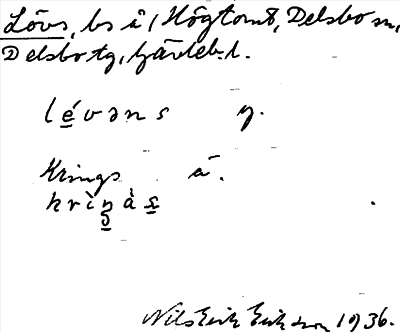 Lövs, bs å, Högtomt, Delsbo sn,
Delsbo tg, Gävleb. l.
lévans y.
Krings å.
krìŋàs
Nils Erik Eriksson 1936.